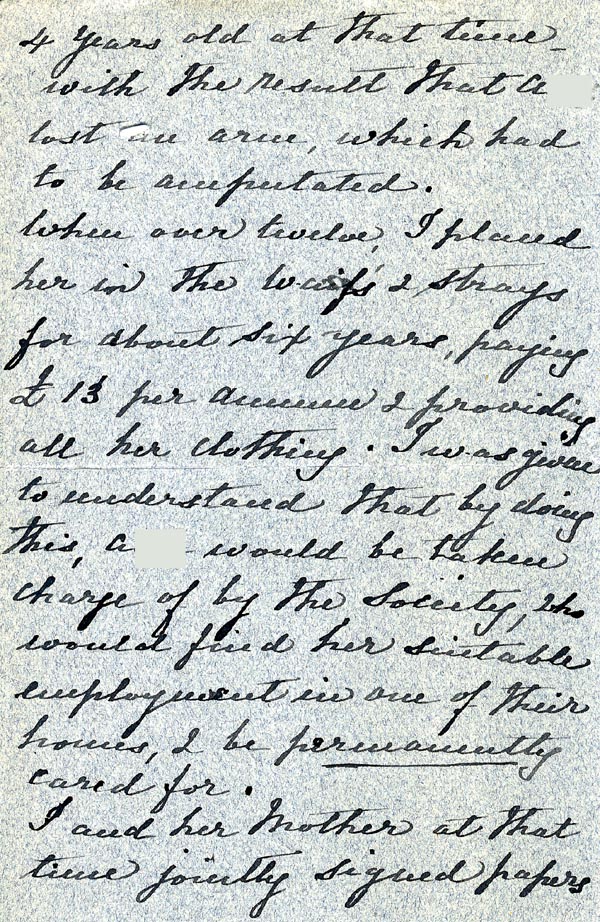 4 years old at that time -
with the result that A
lost an arm, which had
to be amputated.
When over twelve, I placed
her in the Waifs & Strays
for about six years, paying
£13 per annum & providing
all her clothing. I was given
to understand that by doing
this, A would be taken
charge of by the Society, who
would find her suitable
employment in one of their
homes, & be permanently
cared for.
I and her Mother at that
time jointly signed papers